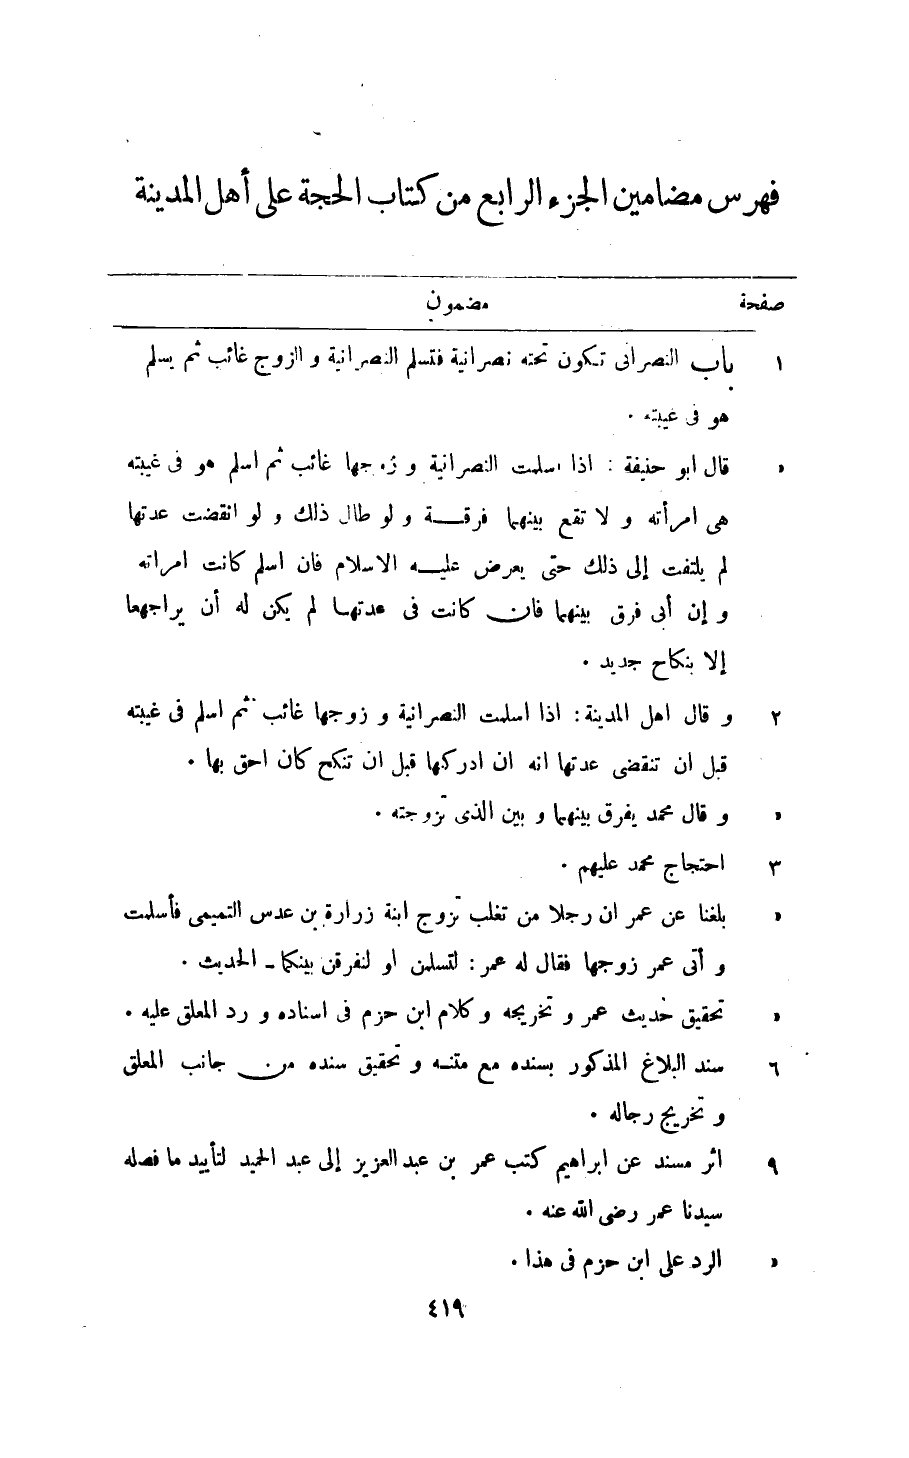 فهرس مضامين الجزء الرابع من كتاب الحجة على أهل المدينة
صفحة مضمون
١ باب النصرانى تكون تحته نصرانية فتسلم النصرانية و الزوج غائب ثم يسلم
هو فى غيبته .
» قال ابو حنيفة : اذا اسلمت النصرانية و زوجها غائب ثم اسلم هو فى غيبته
هى امرأته و لا تقع بينهما فرقة و لو طال ذلك و لو انقضت عدتها
لم يلتفت إلى ذلك حتى يعرض عليه الاسلام فان اسلم كانت امراته
و إن أبى فرق بينهما فان كانت فى عدتها لم يكن له أن يراجهعا
إلا بنكاح جديد .
٢ و قال اهل المدينة : اذا اسلمت النصرانية و زوجها غائب ثم اسلم فى غيبته
قبل ان تنقضى عدتها انه ان ادركها قبل ان تنكح كان احق بها .
» و قال محمد يفرق بينهما و بين الذى تزوجته .
٣ احتجاج محمد عليهم .
» بلغنا عن عمر ان رجلا من تغلب تزوج ابنة زرارة بن عدس التميمى فأسلمت
و أتى عمر زوجها فقال له عمر : لتسلمن او لنفرقن بينكما - الحديث .
» تحقيق حديث عمر و تخريجه و كلام ابن حزم فى اسناده و رد المعلق عليه .
٦ سند البلاغ المذكور بسنده مع متنه و تحقيق سنده من جانب المعلق
و تخريج رجاله .
٩ اثر مسند عن ابراهيم كتب عمر بن عبد العزيز إلى عبد الحميد لتأييد ما فصله
سيدنا عمر رضى الله عنه .
» الرد على ابن حزم فى هذا .
٤١٩